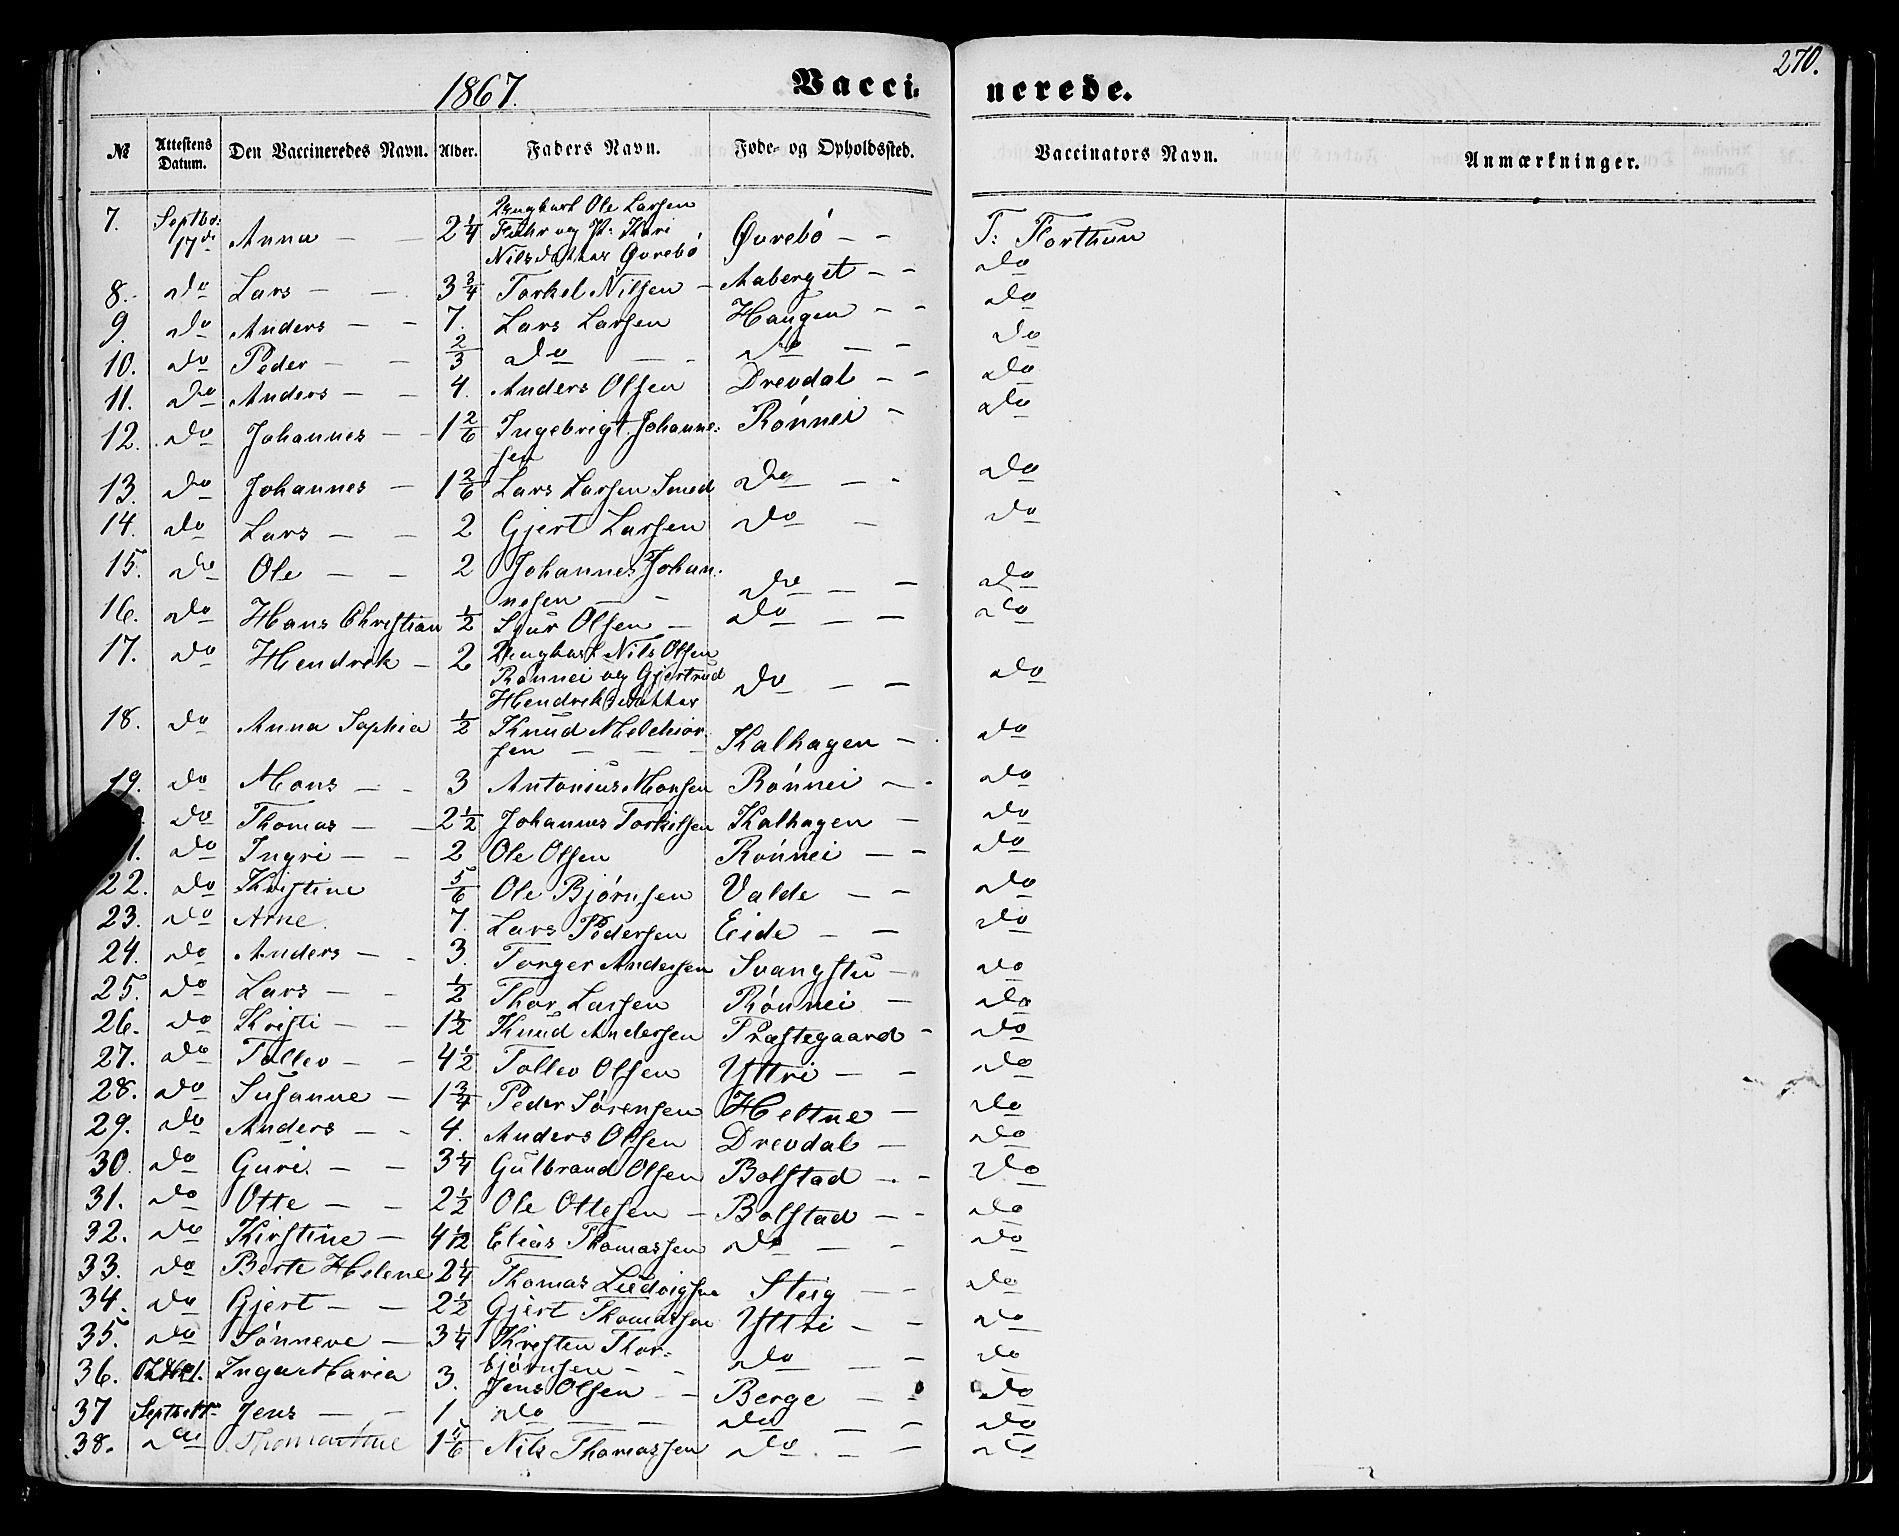 270.
1867. Vaccinerede.
№ Attestens Datum. Den Vaccineredes Navn. Alder. Faders Navn. Føde- og Opholdssted. Vaccinators Navn. Anmærkninger.
Ole Larsen
7. Septbr. 17de Anna – – 2 1/4 og P: Kari Øvrebö – – T: Flørthun
Nilsdatter Øvrebö
8. do Lars – – 3 3/4 Torkel Nilsen – Aaberget – – do
9. do Anders – – 7. Lars Larsen Haugen – – do
10. do Peder – – 2/3 do – – do – – do
11. do Anders – – 4. Anders Olsen Drevdal – – do
12. do Johannes – – 1 2/6 Ingebrigt Johanne: Rönnei – do
sen
13. do Johannes – 1 2/6 Lars Larsen Smed do – – do
14. do Lars – – 2 Gjert Larsen do – do
15. do Ole – – 2 Johannes Johan:
nesen – – do – – do
16. do Hans Christian 1/2 Sjur Olsen – do – – do
17. do Hendrik – 2 Nils Olsen
Rönnei og Gjertrud do – – do
Hendriksdatter
18. do Anna Sophia 1/2 Knud Melchior:
sen – – – Kalhagen – do
19. do Mons – – 3 Antonius Monsen Rönnei – – do
do Thomas – – 2 1/2 Johannes Torkilsen Kalhagen – do
1. do Ingri – – 2 Ole Olsen Rönnei – – do
22. do Kristine 5/6 Ole Bjørnsen Valde – – do
23. do Arne. 7. Lars Pedersen Eide – – do
24. do Anders – – 3. Torger Andersen Svangstu – do
25. do Lars – – 1/2 Thor Larsen Rönnei – do
26. do Kristi – – 1 1/2 Knud Andersen Præstegaard – do
27. do Tollev – – 4 1/2 Tollev Olsen Yttri – – do
28. do Susanne – 1 3/4 Peder Sörensen Heltne – do
29. do Anders – – 4. Anders Olsen Drevdal – do
30. do Guri – – 3 1/4 Gulbrand Olsen Bolstad – – do
31. do Otte – – 2 1/2 Ole Ottesen – Bolstad – – do
32. do Kirstine – 4 1/2 Elias Thomassen do – – do
33. do Berte Helene 2 1/4 Thomas Ludvigsen Steig – – do
34. do Gjert – – 2 1/2 Gjert Thomassen Yttri – – do
35. do Sönneve – 3 1/4 Kristen Thor:
björnsen – – do – – do
36. Inga Maria 3. Jens Olsen – – Berge – do
37 Septbr Jens – – 1 do – – do – – do
38. do Thomasine 1 5/6 Nils Thomassen do – – do